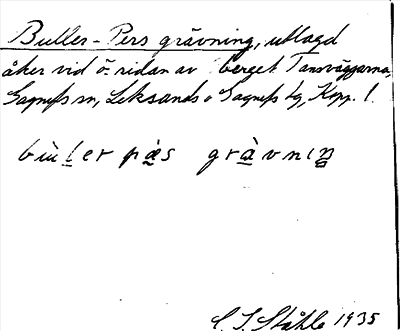 Buller-Pers grävning, utlagd
åker vid ö-sidan av berget Tansväggarna,
Gagnefs sn, Leksands o Gagnefs tg, Kopp. l.
bùḷer pæ̀s gràvnıŋ
C. I. Ståhle 1935